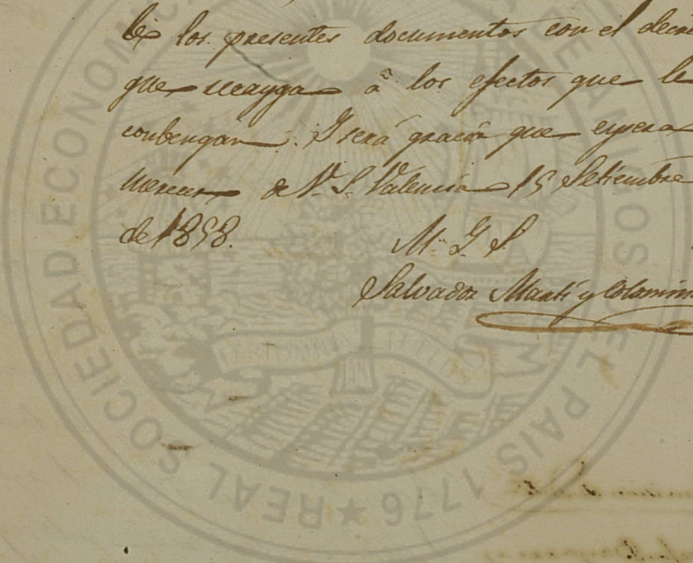 los presentes documentos con el decre
que recayga â los efectos que le
conbengan. I será gracia que espera
merecer de V. S. Valencia 15 Setiembre
de 1858.
M. I. S
Salvador Martí y Colomin
REAL SOCIEDAD ECONOMIC DE AMIGOS EL PAIS 1776